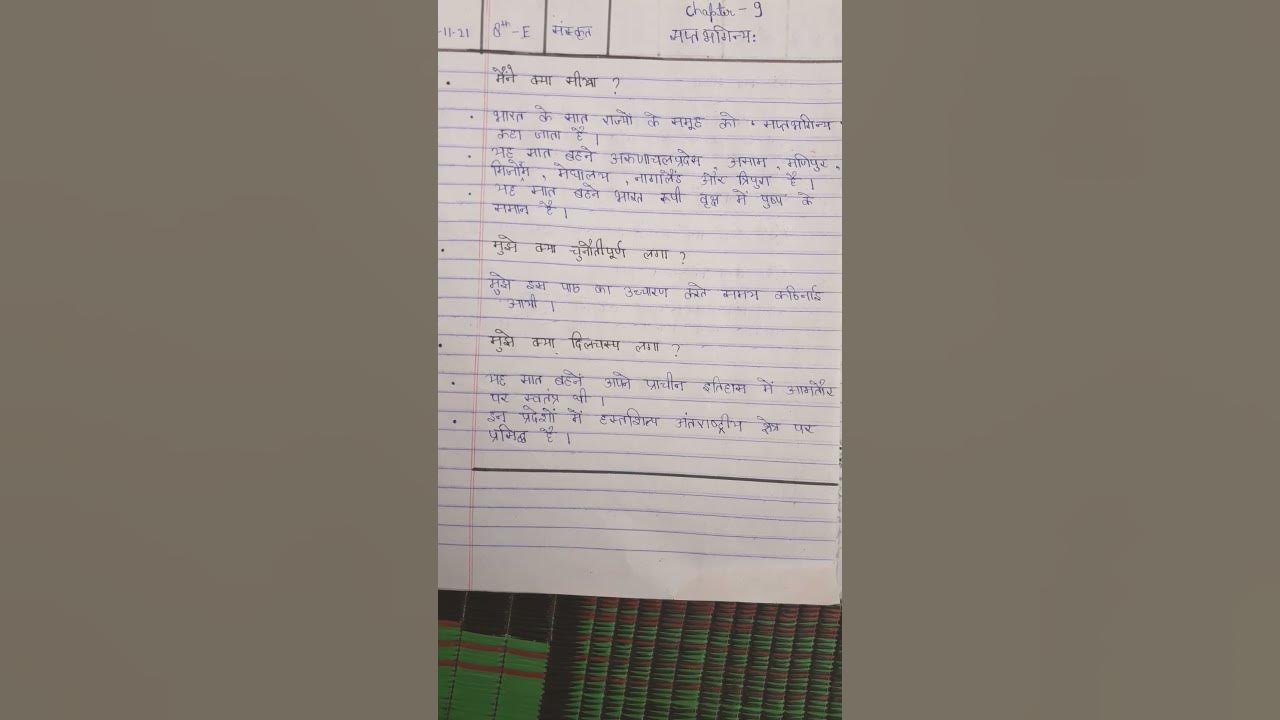 Chapter - 9
-11-21 8th - E संस्कृत सप्तभगिन्यः
मैंने क्या सीखा ?
भारत के सात राज्यों के समूह को 'सप्तभगिन्य'
कहा जाता है ।
यह सात बहने अरुणाचलप्रदेश , असाम , मणिपुर ,
मिजोरम , मेघालय , नागालैंड और त्रिपुरा है ।
यह सात बहने भारत रूपी वृक्ष में पुष्प के
समान है ।
मुझे क्या चुनौतीपूर्ण लगा ?
मुझे इस पाठ का उच्चारण करते समय कठिनाई
आयी ।
मुझे क्या दिलचस्प लगा ?
यह सात बहनें अपने प्राचीन इतिहास में आमतौर
पर स्वतंत्र थी ।
इन प्रदेशों में हस्तशिल्प अंतराष्ट्रीय क्षेत्र पर
प्रसिद्ध है ।